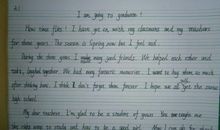 I am going to graduate!
How time flies! I have get on with my classmates and my teachers
for three years. The season is Spring now but I feel sad.
During the three years, I made many good friends. We helped each other and
laughed together. We had many fantastic memories. I want to hug them so much
after thinking them. I think I don't forget them forever. I hope we all get the same
high school.
My dear teachers. I'm glad to be a student of yours. You taught me